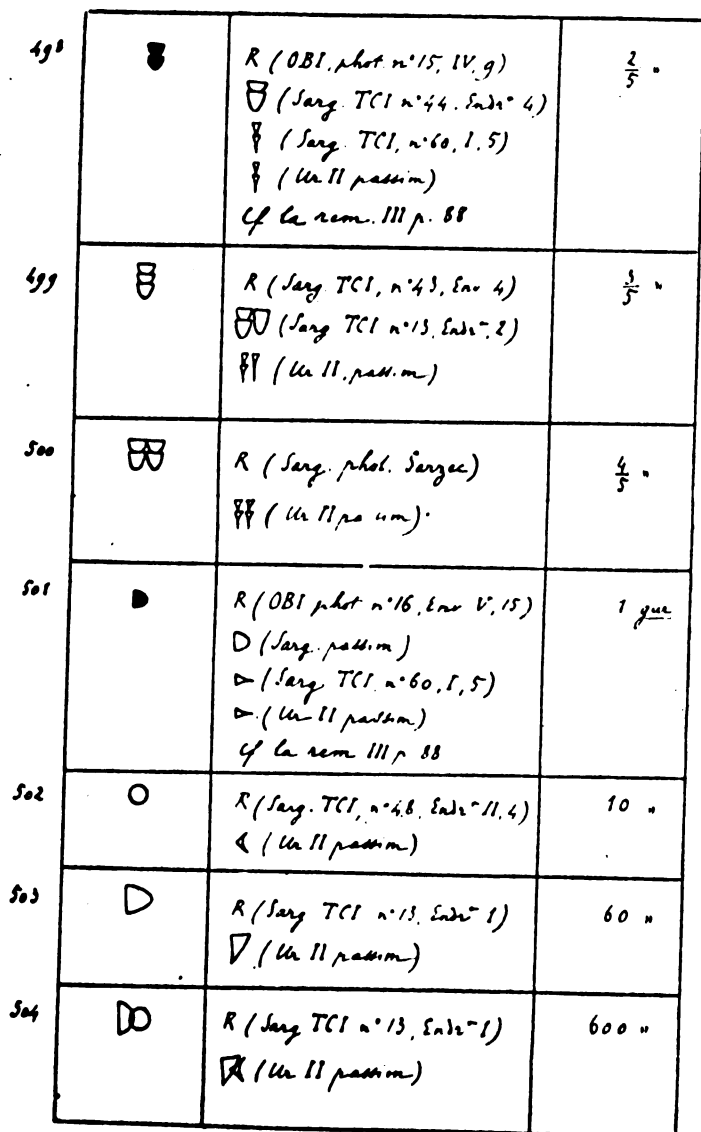 498 R (OBI, phot. n° 15, IV, 9) 2/5 "
(Sarg. TCI n° 44. Endrt 4)
(Sarg. TCI, n° 60, I, 5)
(Ur II passim)
Cf la rem. III p. 88
499 R (Sarg. TCI, n° 43, Env 4) 3/5 "
(Sarg TCI n° 13, Endrt, 2)
(Ur II, passim)
500 R (Sarg. phot. Sarzec) 4/5 "
(Ur II passim).
501 R (OBI phot n° 16, Env V, 15) 1 gur
D (Sarg. passim)
(Sarg TCI n° 60, I, 5)
(Ur II passim)
Cf la rem III p 88
502 R (Sarg. TCI, n° 48, Endrt II, 4) 10 "
(Ur II passim)
503 R (Sarg TCI n° 13, Endrt 1) 60 "
(Ur II passim)
504 R (Sarg TCI n° 13, Endrt 1) 600 "
(Ur II passim)